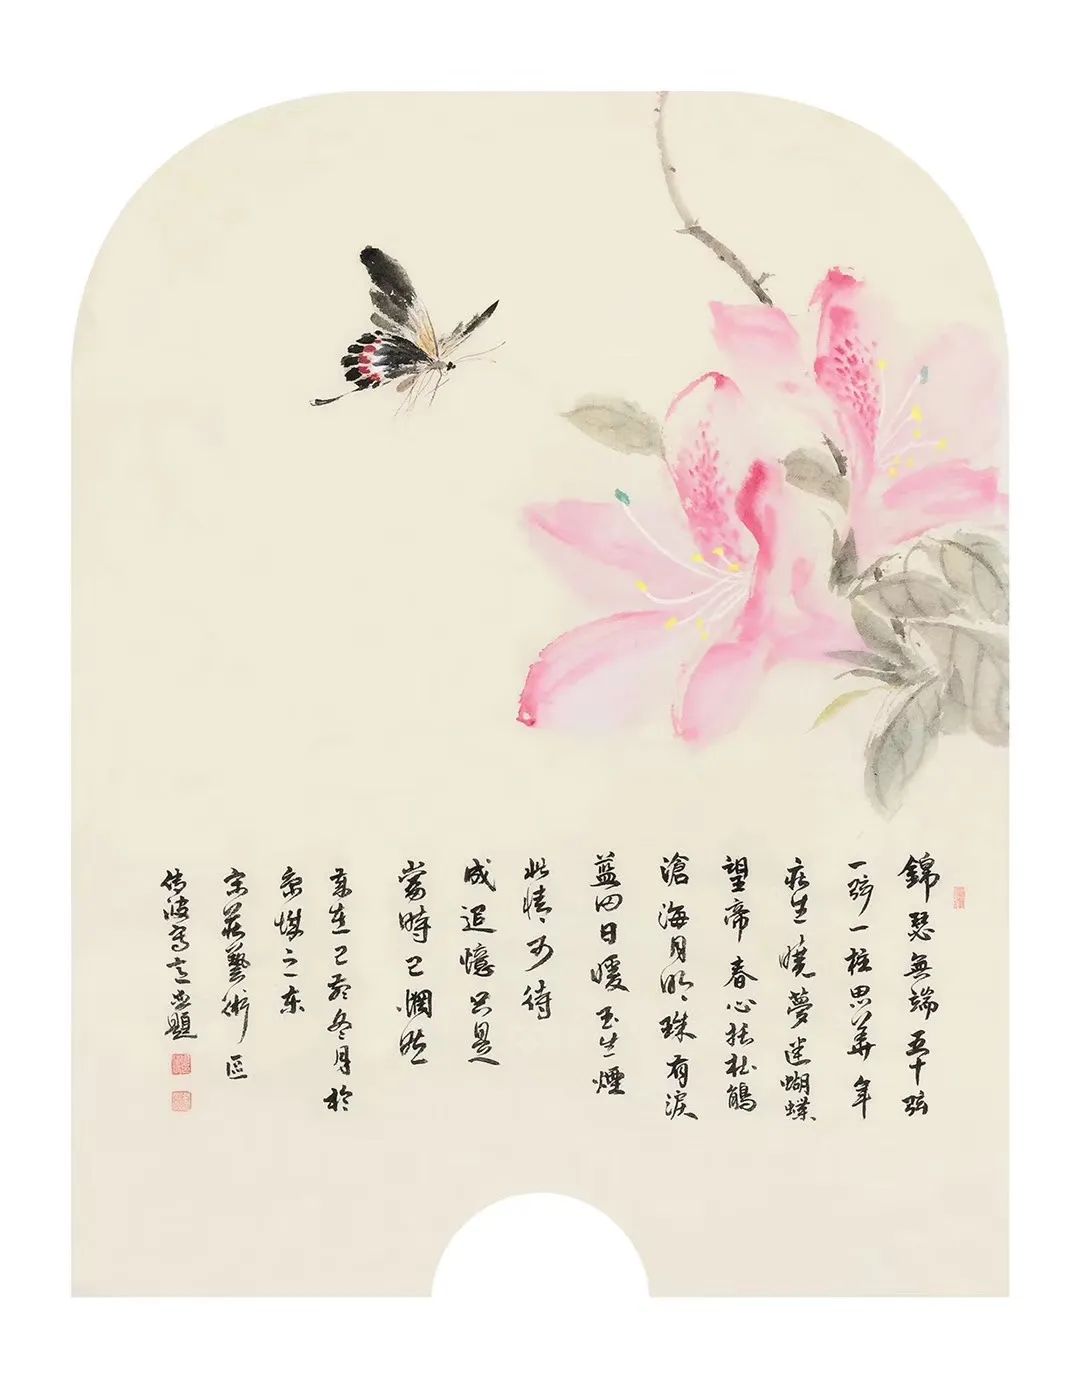 錦瑟無端五十弦
一弦一柱思華年
莊生曉夢迷蝴蝶
望帝春心托杜鵑
滄海月明珠有淚
藍田日暖玉生煙
此情可待
成追憶只是
當時已惘然
歲在己亥冬月於
京城之東
宋莊藝術區
傳波寫意並題